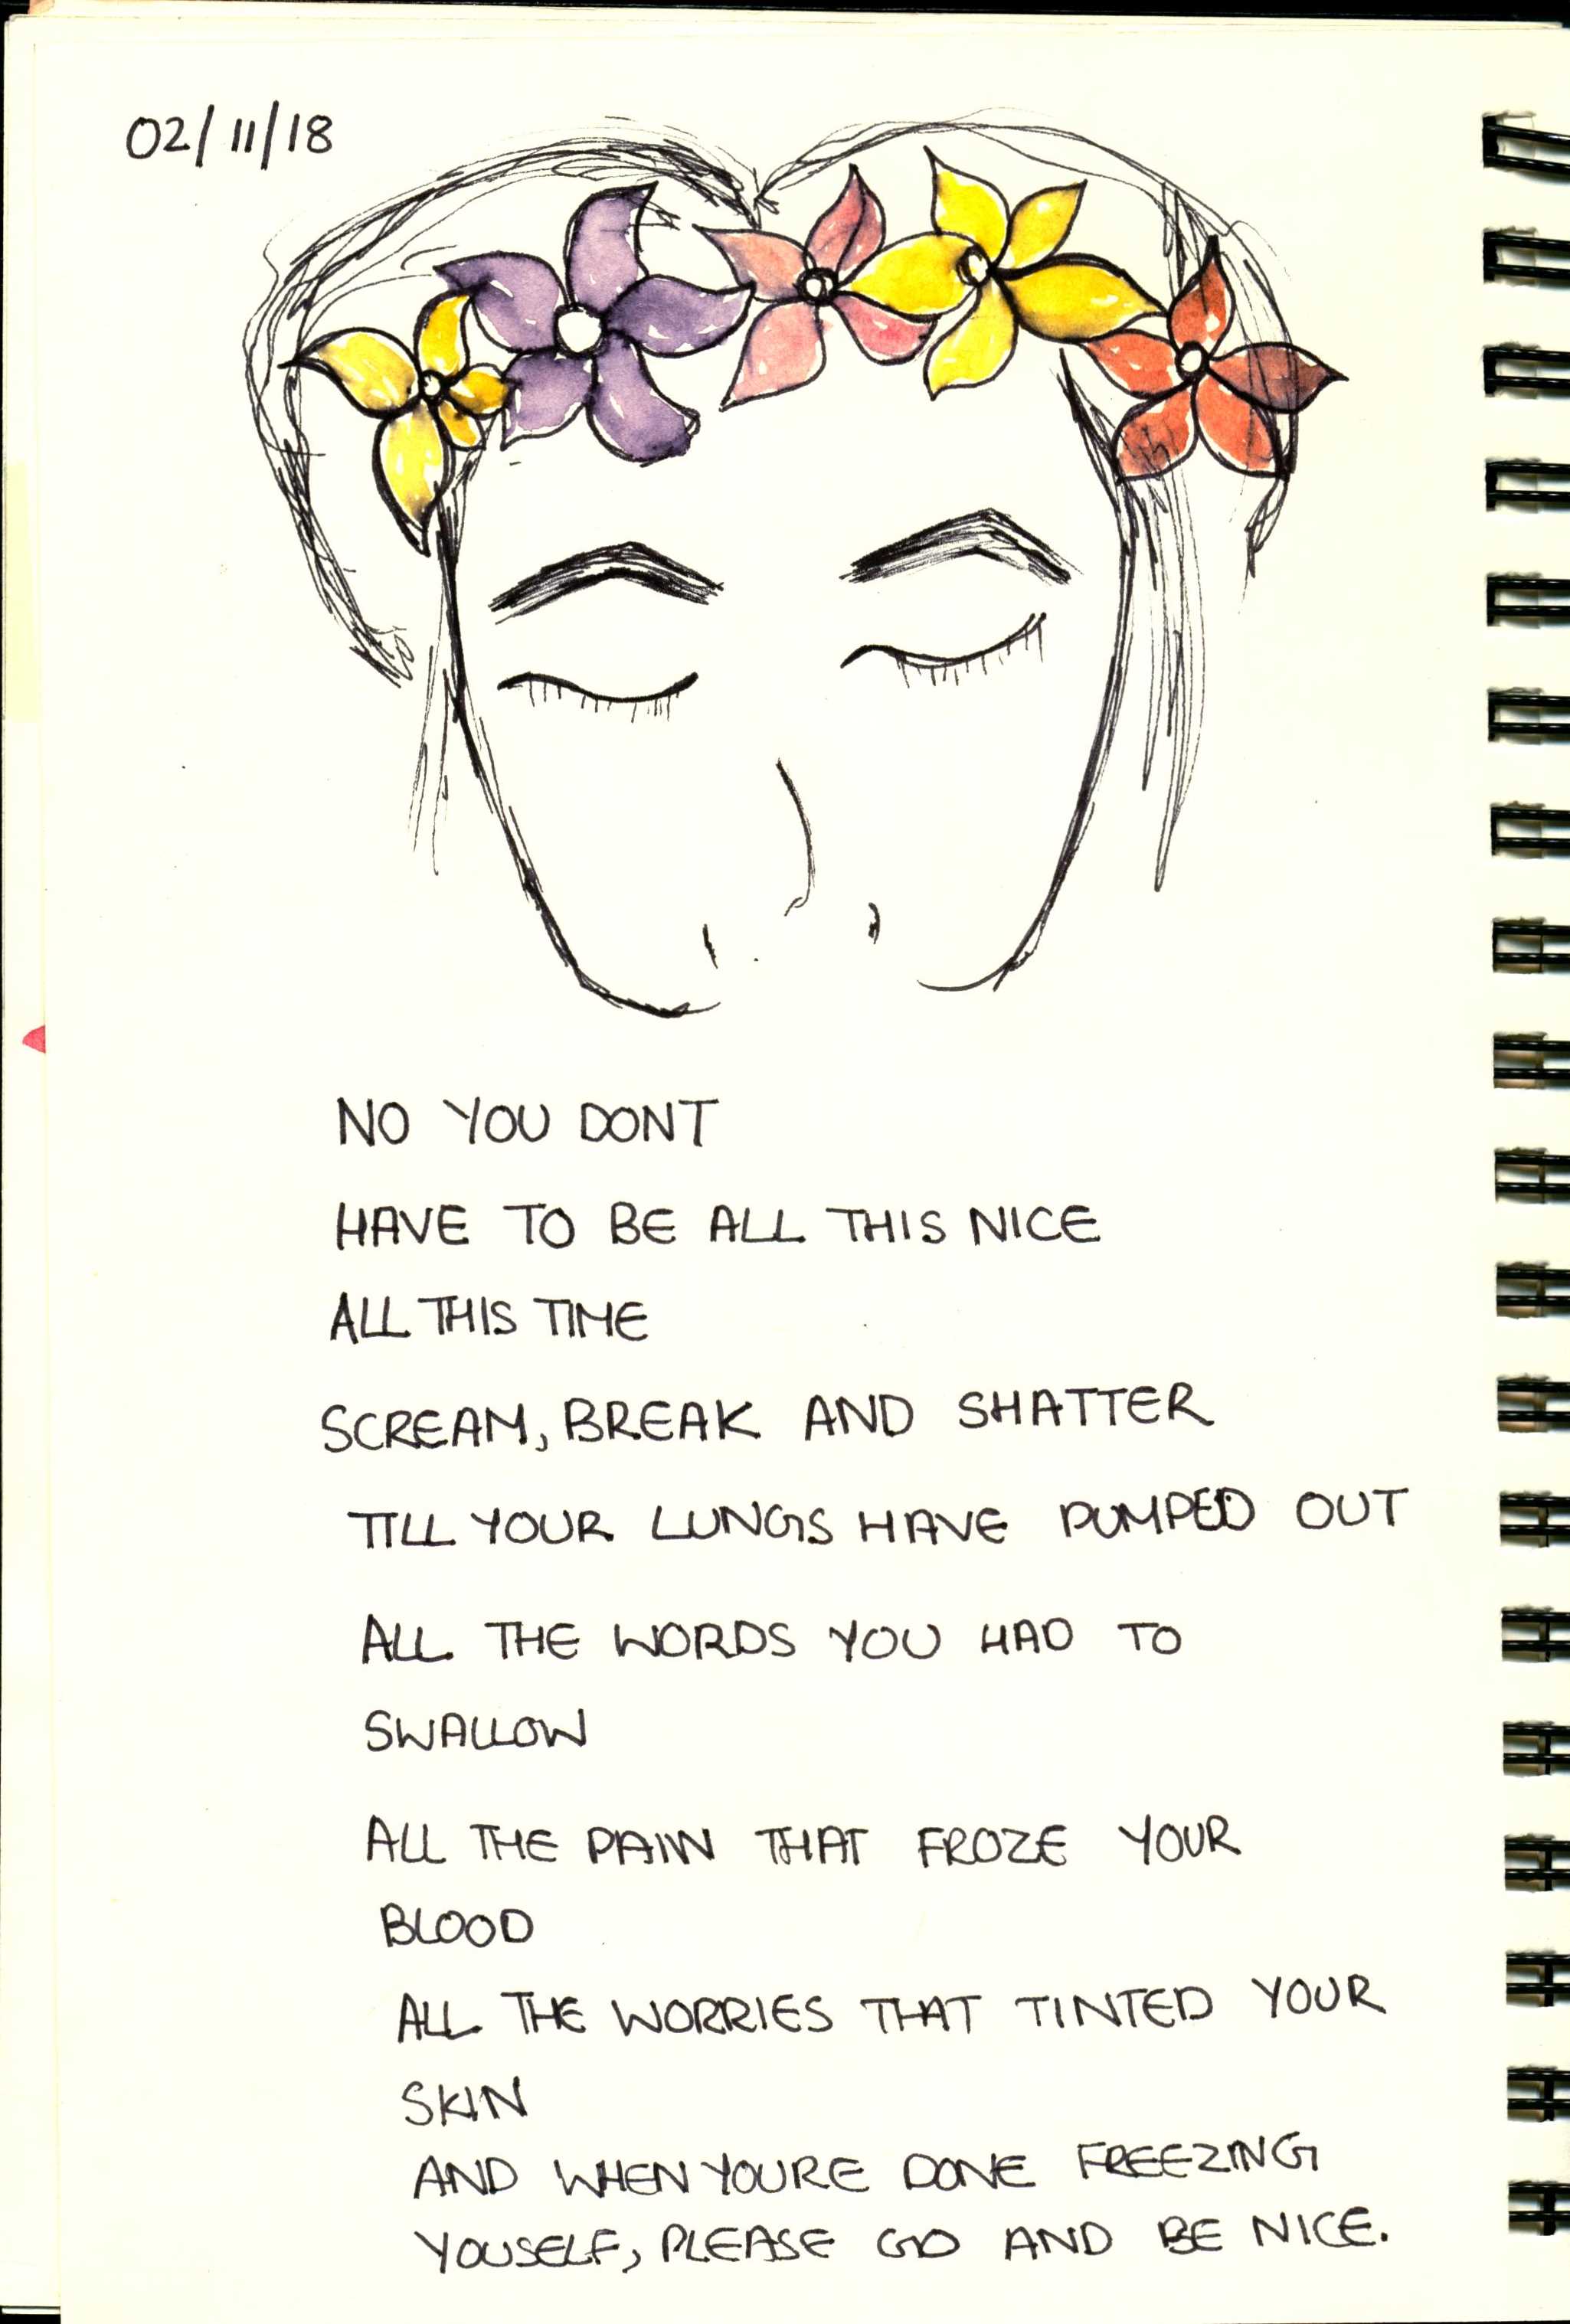 02/11/18
NO YOU DONT
HAVE TO BE ALL THIS NICE
ALL THIS TIME
SCREAM, BREAK AND SHATTER
TILL YOUR LUNGS HAVE PUMPED OUT
ALL THE WORDS YOU HAD TO
SWALLOW
ALL THE PAIN THAT FROZE YOUR
BLOOD
ALL THE WORRIES THAT TINTED YOUR
SKIN
AND WHEN YOURE DONE FREEZING
YOUSELF, PLEASE GO AND BE NICE.